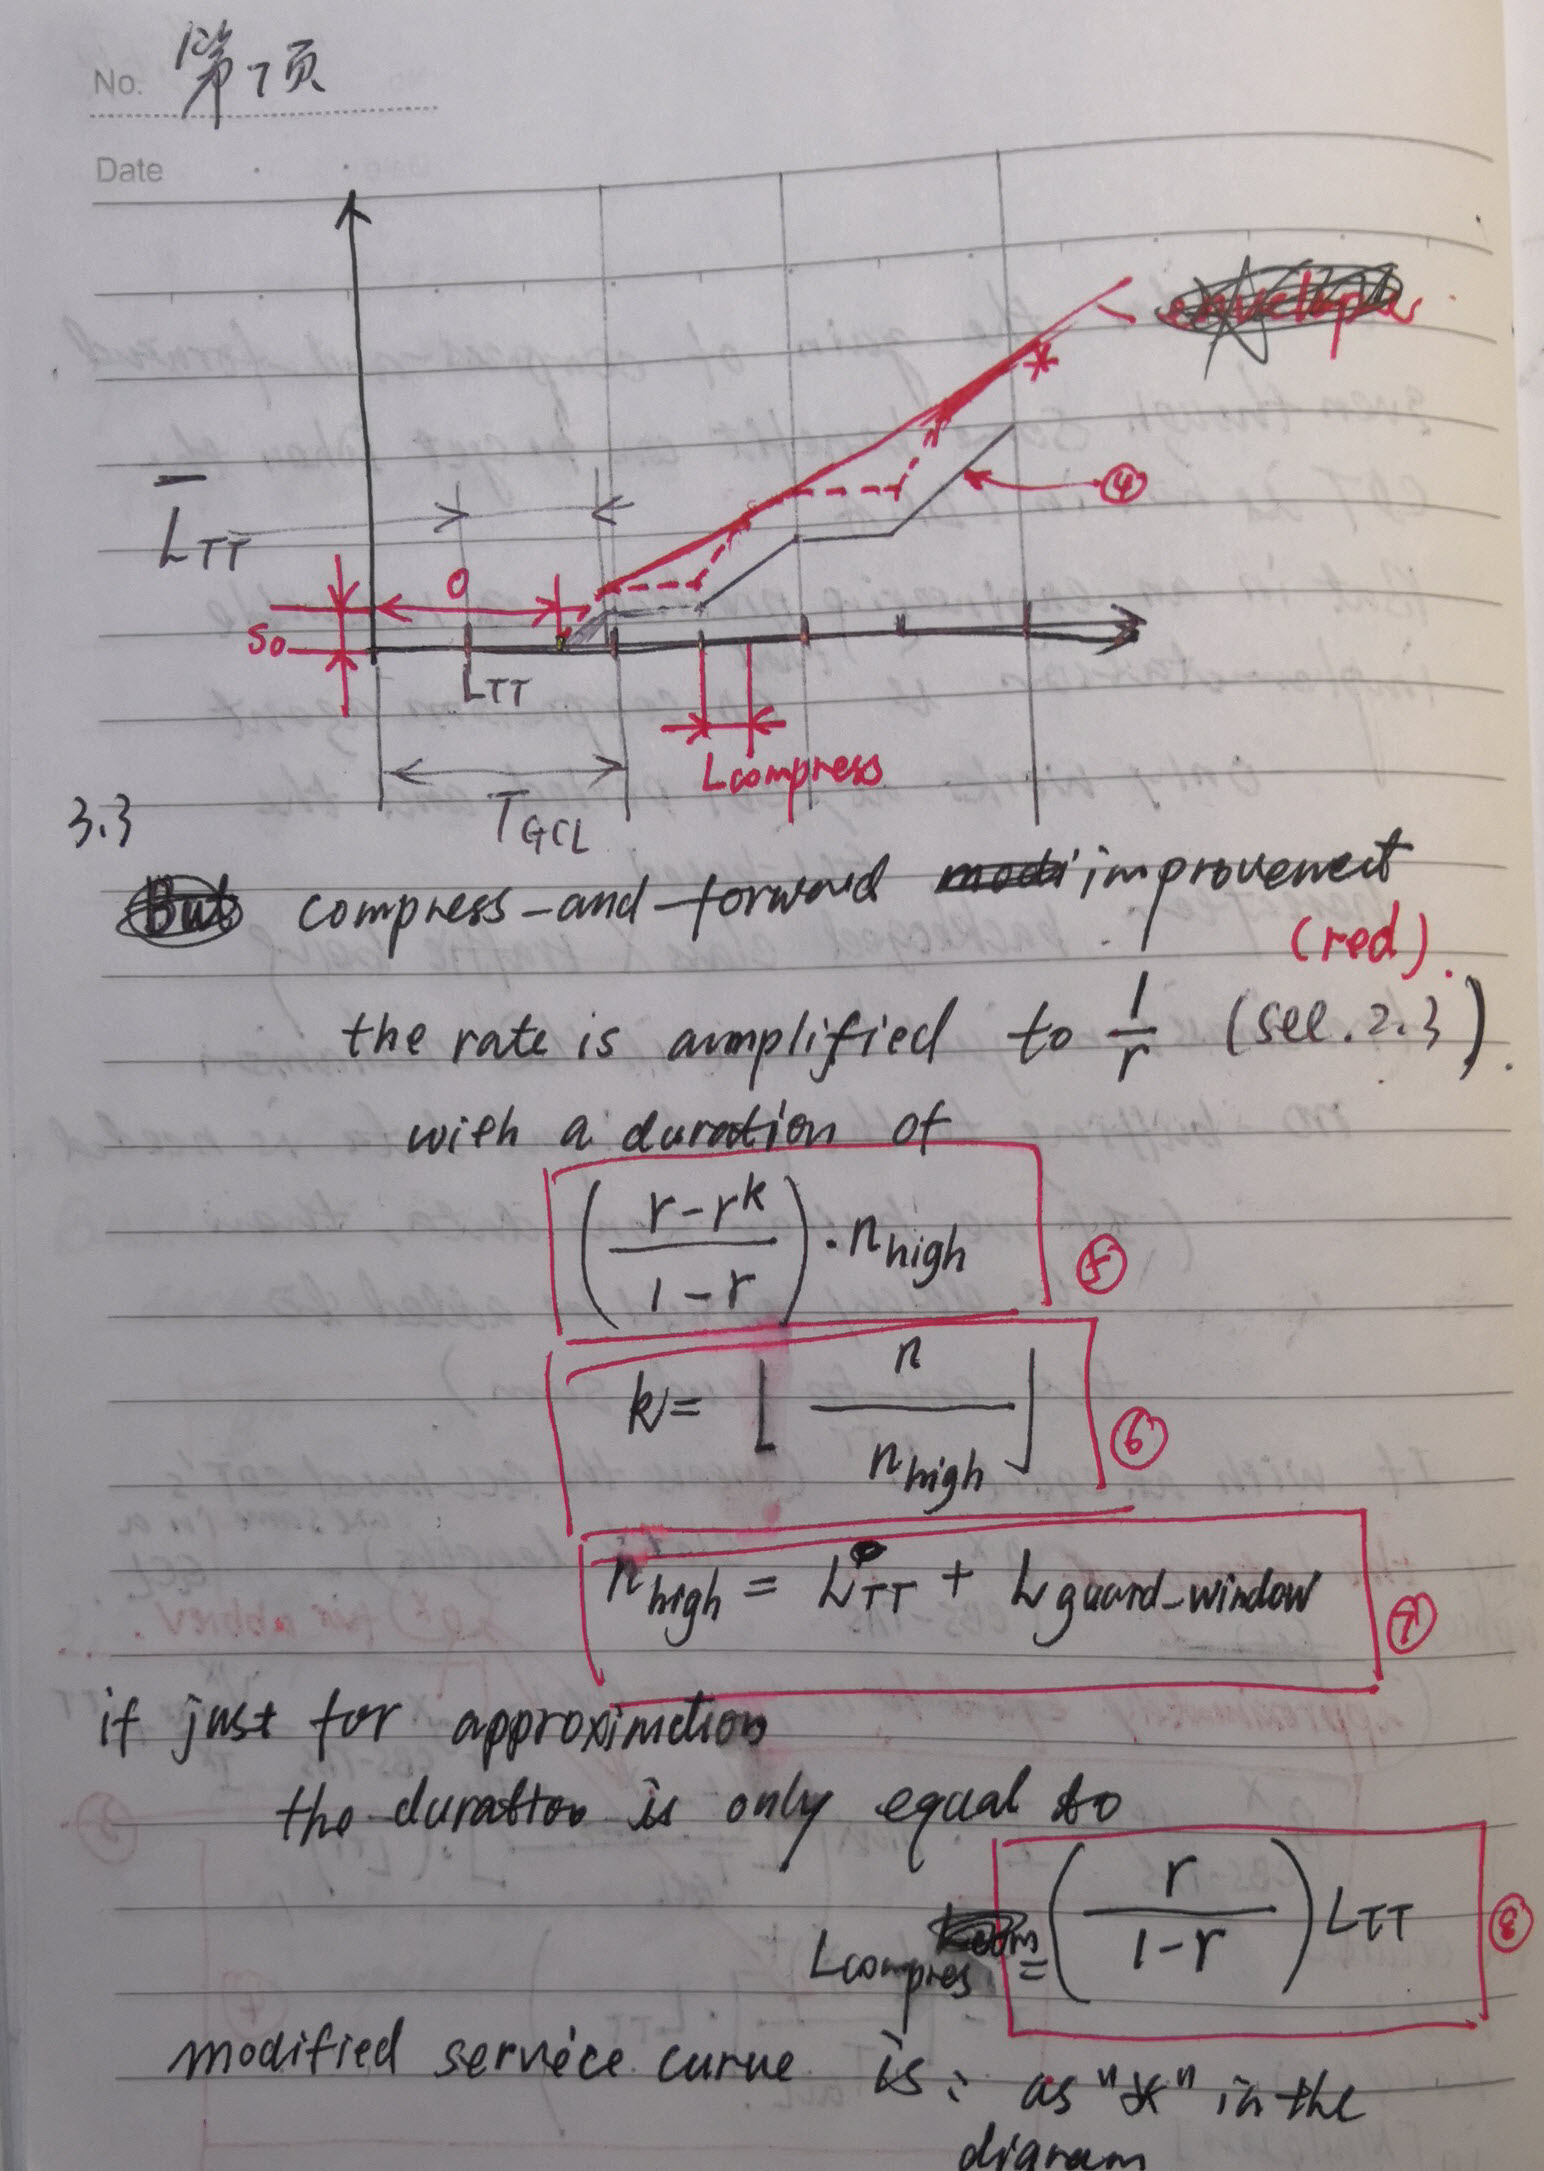 No. 第7页
Date
*
④
L̅TT
O
So
LTT
Lcompress
TGCL
3.3
compress-and-forward improvement
(red).
the rate is amplified to 1/r (sec. 2.3).
with a duration of
((r-r^k)/(1-r)) · nhigh ⑤
k = ⌊n/nhigh⌋ ⑥
nhigh = LTT + Lguard_window ⑦
if just for approximation
the duration is only equal to
Lcompres = (r/(1-r)) LTT ⑧
modified service curve is: as "*" in the
digram